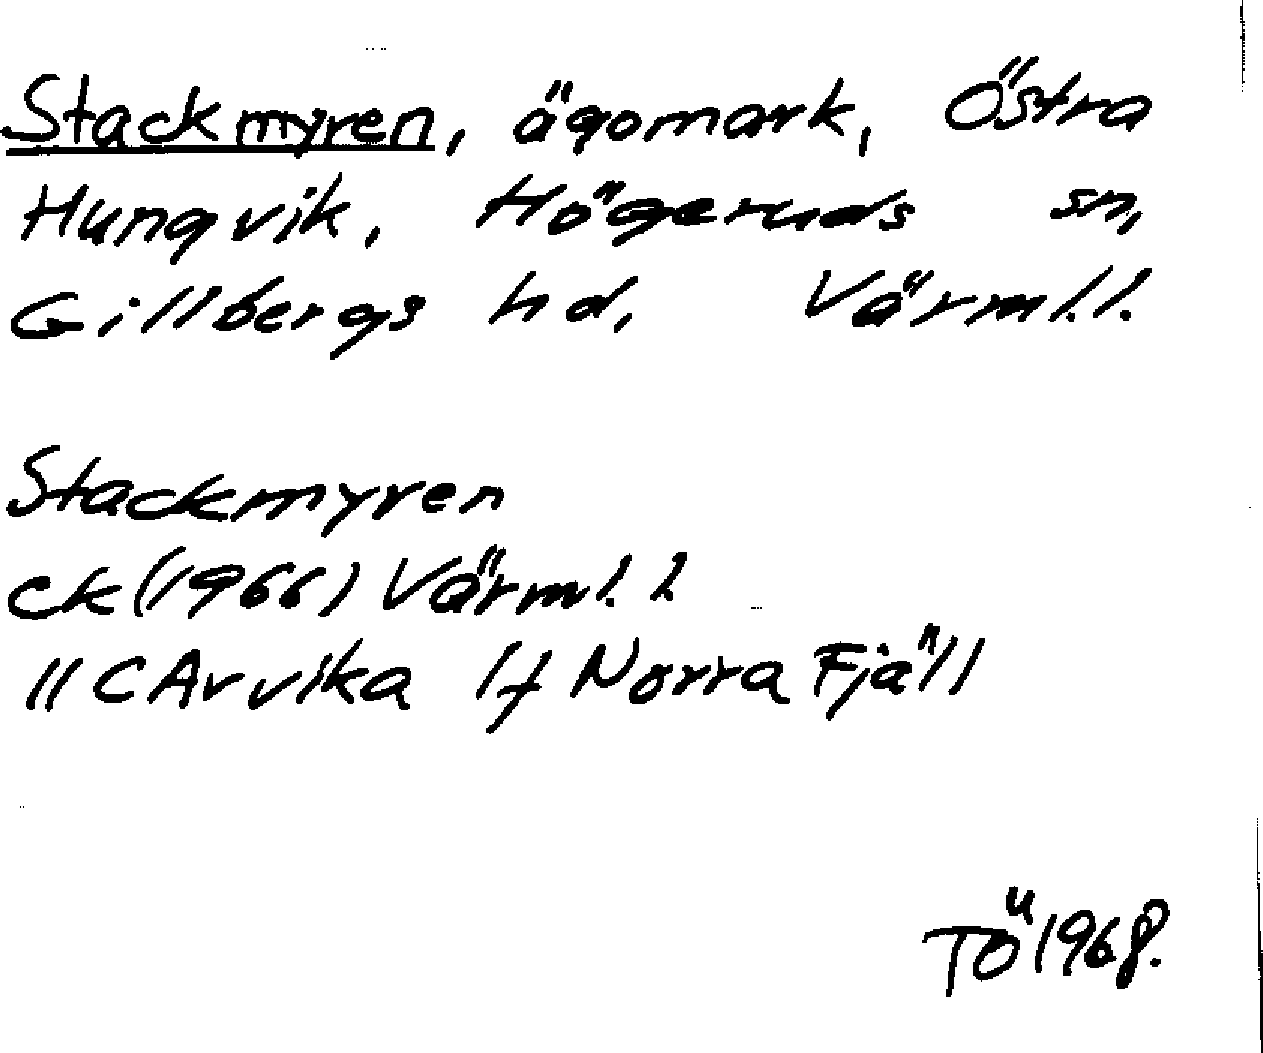 Stackmyren, ägomark, Östra
Hungvik, Högeruds sn,
Gillbergs hd, Värml.l.
Stackmyren
ck (1966) Värml. l.
11 C Arvika 1f Norra Fjäll
TÖ 1968.